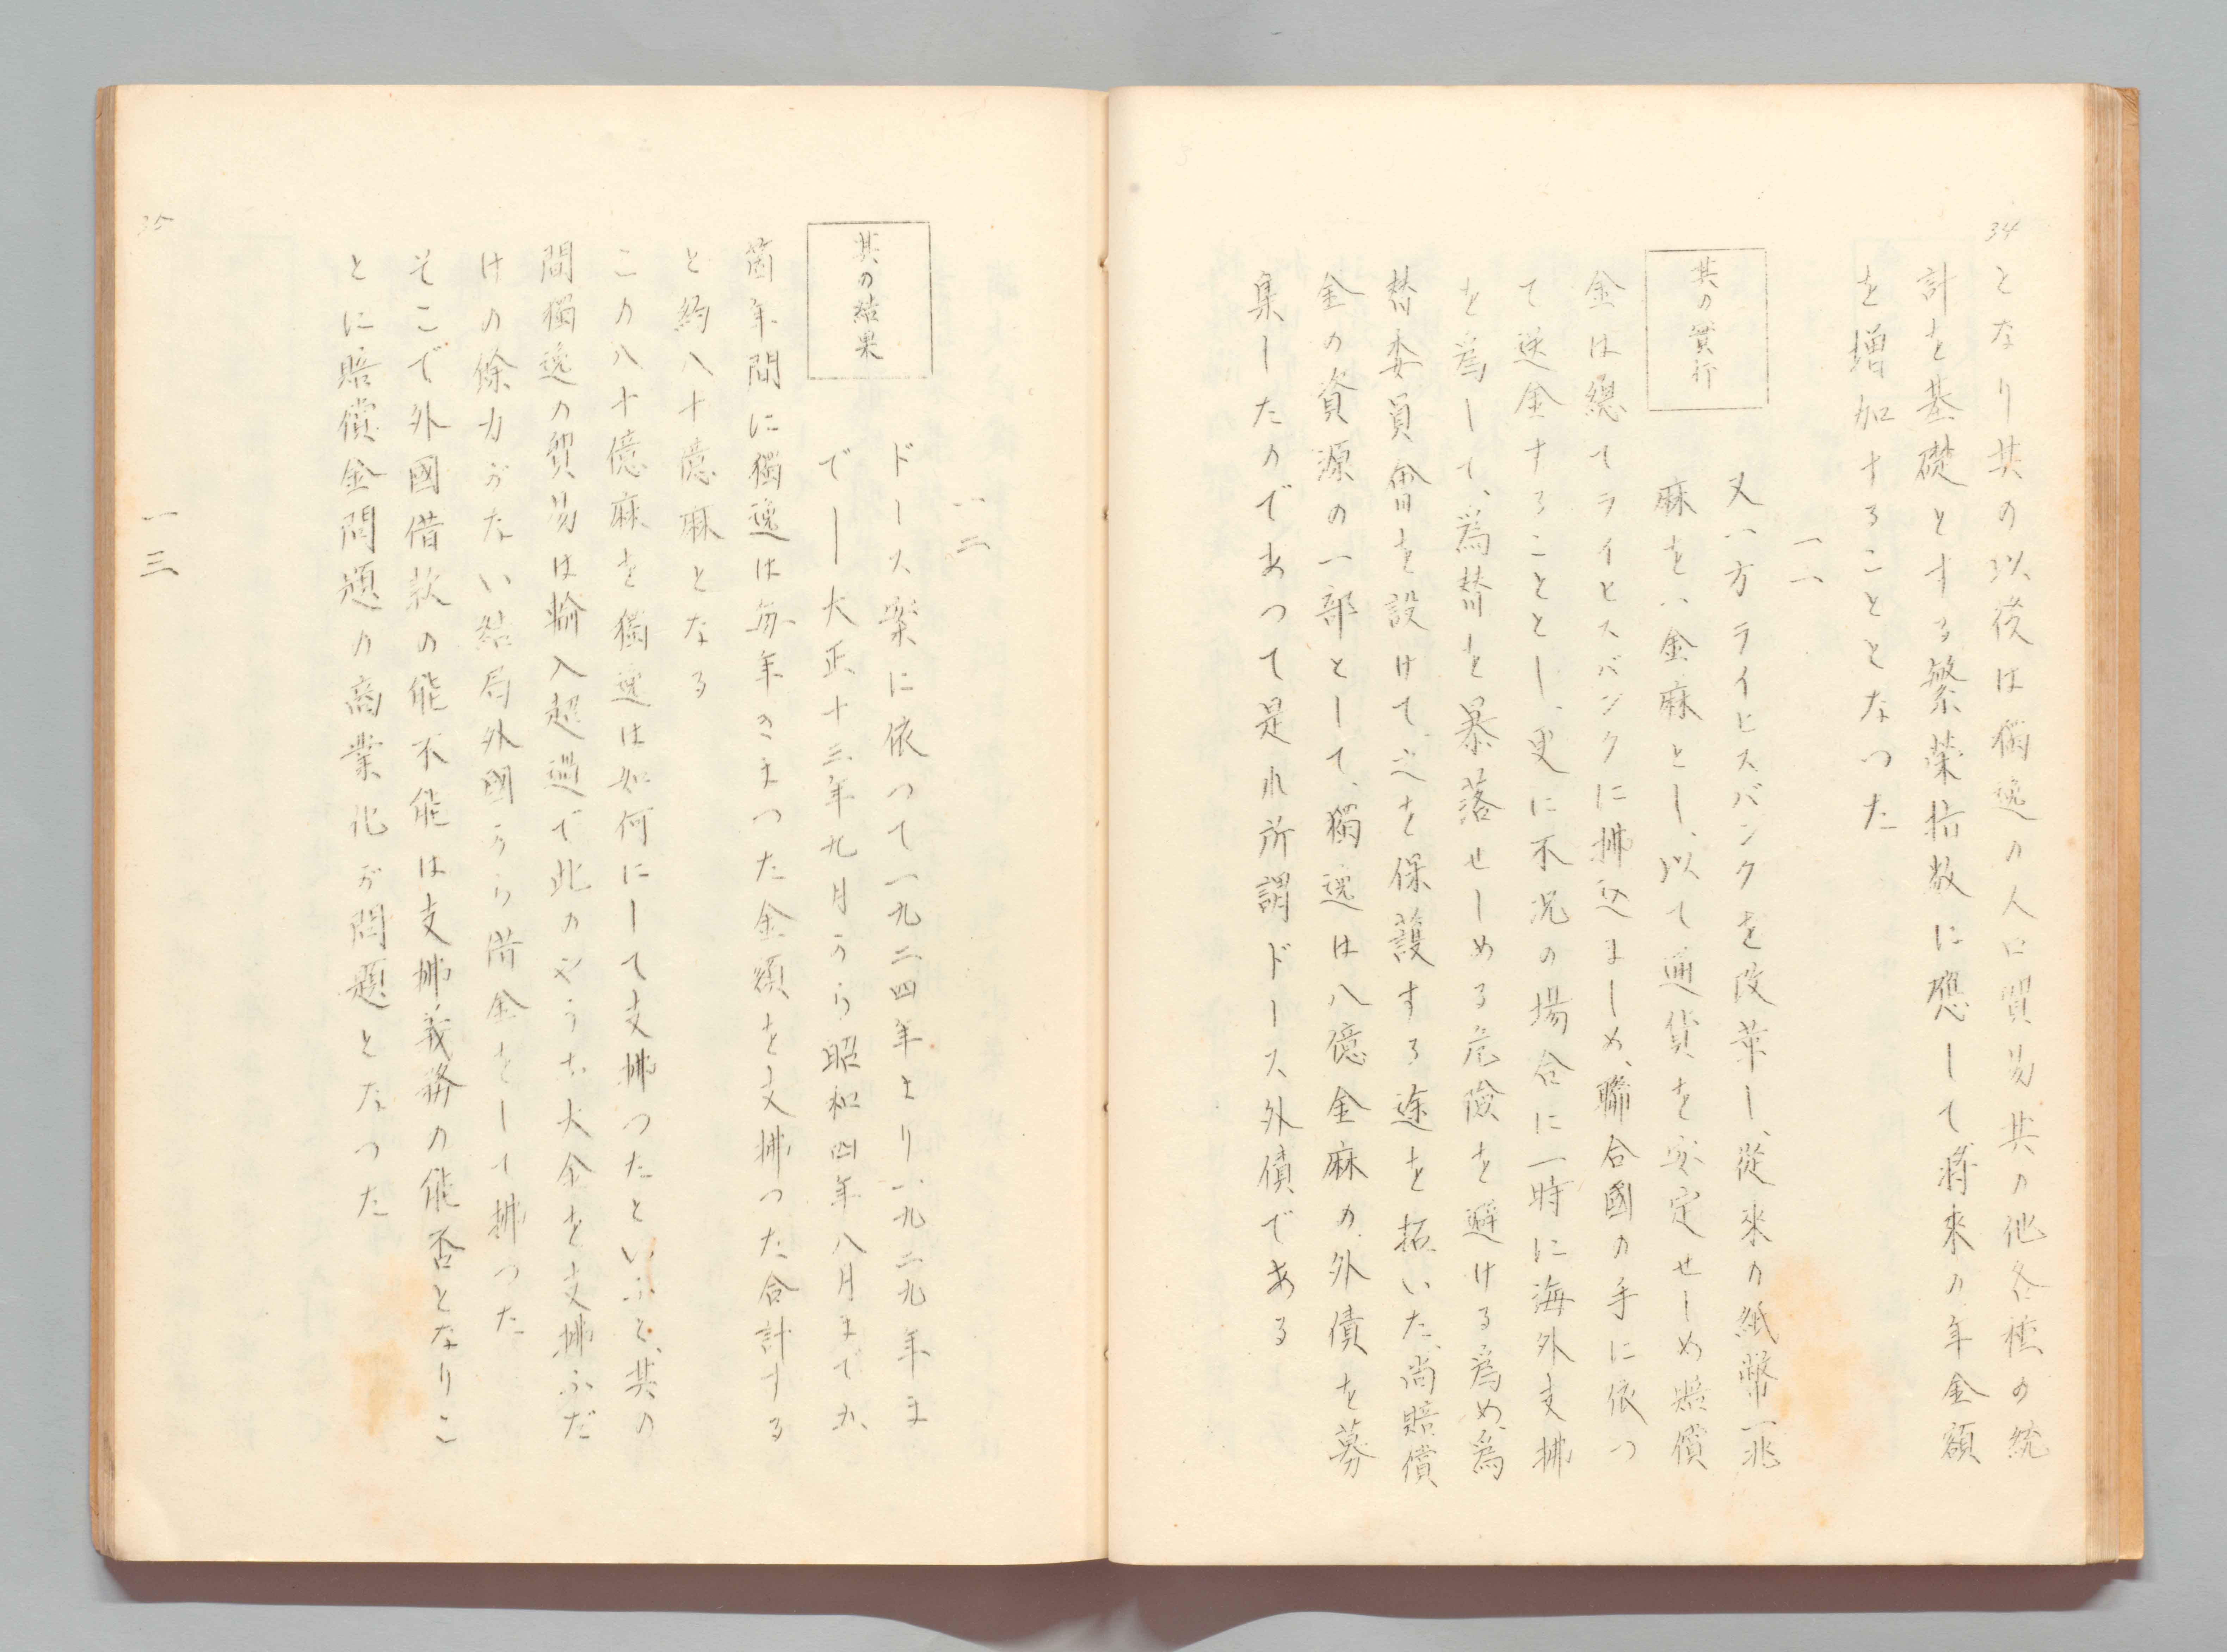 34
となり其の以後は獨逸の人口貿易其の他各種の統
計を基礎とする繁榮指数に應して將來の年金額
を増加することとなつた
一一
其の實行
又一方ライヒスバンクを改革し、從來の紙幣一兆
麻を一金麻とし、以て通貨を安定せしめ賠償
金は總てライヒスバンクに拂込ましめ、聯合國の手に依つ
て送金することとし、更に不況の場合に一時に海外支拂
を爲して、爲替を暴落せしめる危險を避ける爲め、爲
替委員會を設けて之を保護する途を拓いた、尚賠償
金の資源の一部として、獨逸は八億金麻の外債を募
集したのであつて是れ所謂ドース外債である
一二
其の結果
ドース案に依つて一九二四年より一九二九年ま
で―大正十三年九月から昭和四年八月まで五
箇年間に獨逸は毎年きまつた金額を支拂つた合計する
と約八十億麻となる
この八十億麻を獨逸は如何にして支拂つたといふと、其の
間獨逸の貿易は輸入超過で此のやうな大金を支拂ふだ
けの餘力がない結局外國から借金をして拂つた
そこで外國借款の能不能は支拂義務の能否となりこ
とに賠償金問題の商業化が問題となつた
一三
35